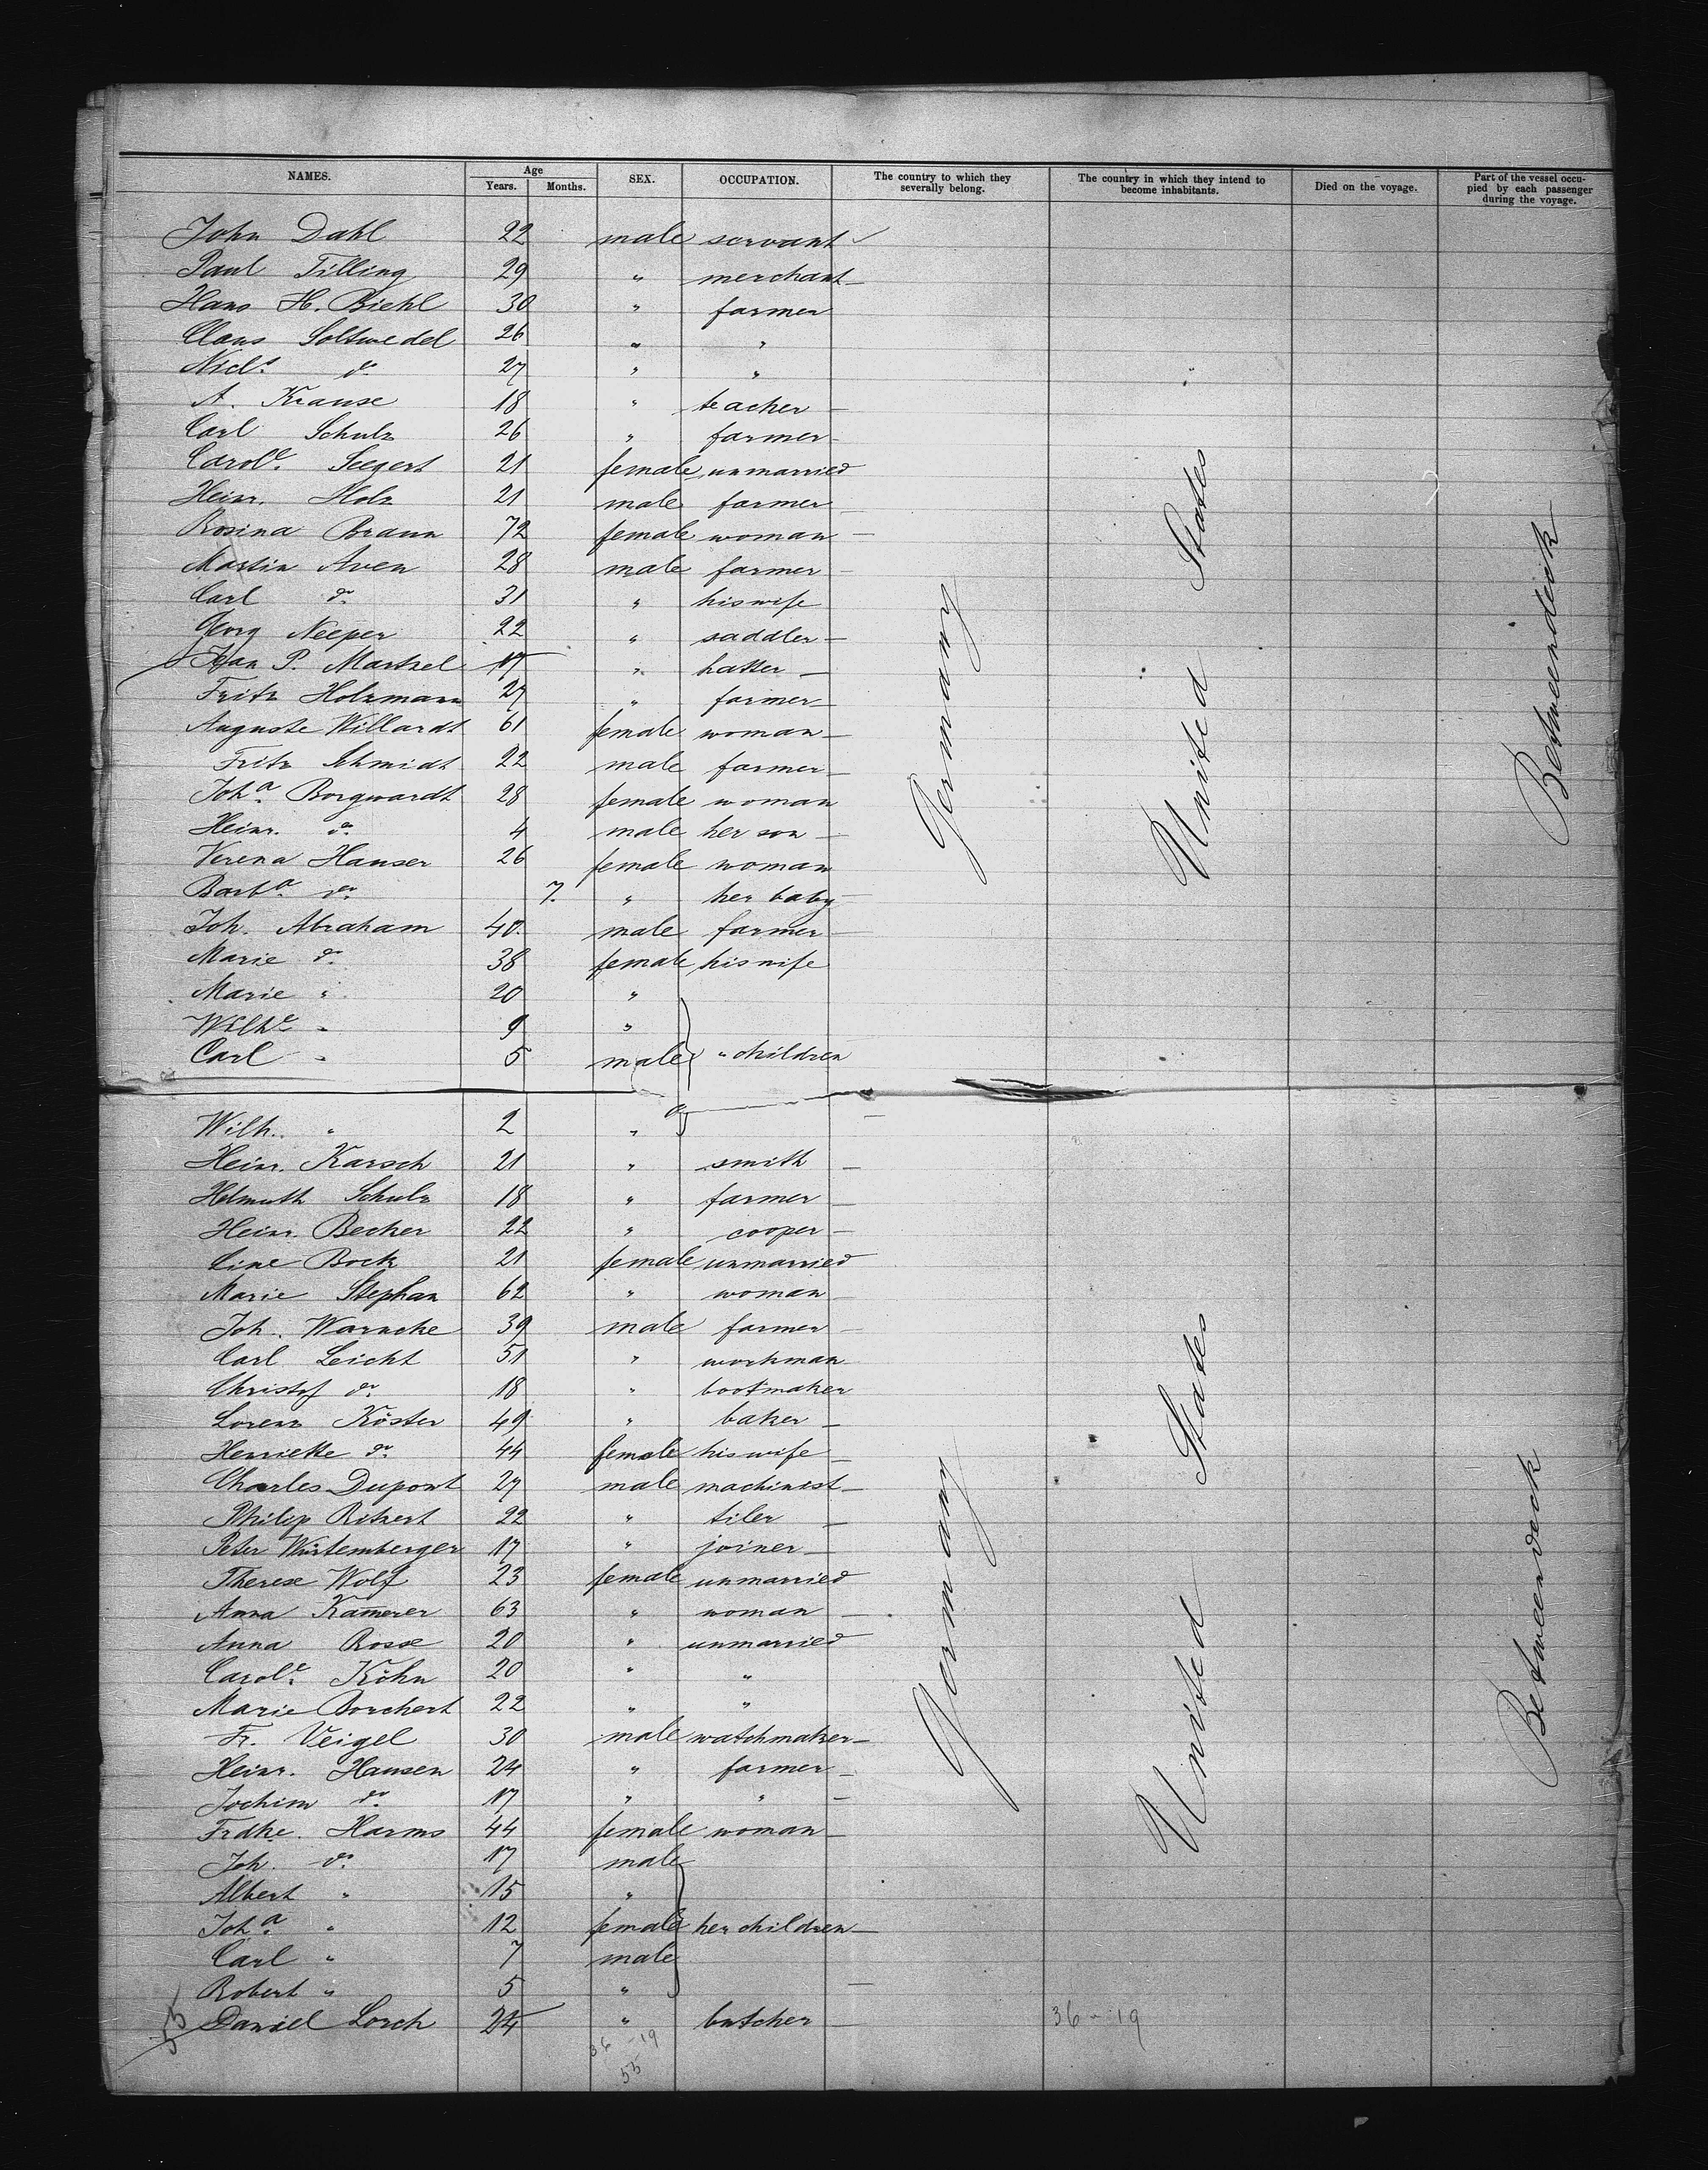 NAMES. Age SEX. OCCUPATION. The country to which they severally belong. The country in which they intend to become inhabitants. Died on the voyage. Part of the vessel occupied by each passenger during the voyage.
Years. Months.
John Dahl 22 male servant
Paul Tilling 29 " merchant
Hans H. Biehl 30 " farmer
Claus Soltwedel 26 " "
Nicls do 27 " "
A. Krause 18 " teacher
Carl Schulz 26 " farmer
Carole. Seegert 21 female unmarried
Heinr. Holz 21 male farmer
Rosina Braun 72 female woman
Martin Aven 28 male farmer
Carl do 31 " his wife
Georg Neeper 22 " saddler
Joan P. Martzel 17 " hatter
Fritz Holzmann 27 " farmer
Auguste Willardt 61 female woman
Fritz Schmidt 22 male farmer
Joha. Borgwardt 28 female woman
Heinr. do 4 male her son
Verena Hauser 26 female woman
Barba. do 7. " her baby
Joh. Abraham 40. male farmer
Marie do 38 female his wife
Marie " 20 "
Wilhe " 9 "
Carl " 5 male " children
Wilh. " 2 "
Heinr. Karsch 21 " smith
Helmuth Schulz 18 " farmer
Heinr. Becker 22 " cooper
Line Bock 21 female unmarried
Marie Stephan 62 " woman
Joh. Warncke 39 male farmer
Carl Leicht 51 " workman
Christof do 18 " bootmaker
Lorenz Köster 49 " baker
Henriette do 44 female his wife
Charles Dupont 27 male machinist
Philip Ritzert 22 " tiler
Peter Würtemberger 17 " joiner
Therese Wolf 23 female unmarried
Anna Kam̅erer 63 " woman
Anna Rosse 20 " unmarried
Carole. Köhn 20 " "
Marie Borchert 22 " "
Fr. Veigel 30 male watchmaker
Heinr. Hansen 24 " farmer
Jochim do 17 " "
Frdke. Harms 44 female woman
Joh. do 17 male
Albert " 15 "
Joha. " 12 female her children
Carl " 7 male
Robert " 5 "
Daniel Lorch 24 " butcher
Germany
United States
Betweendeck
Germany
United States
Betweendeck
55
36 - 19
55
36 - 19